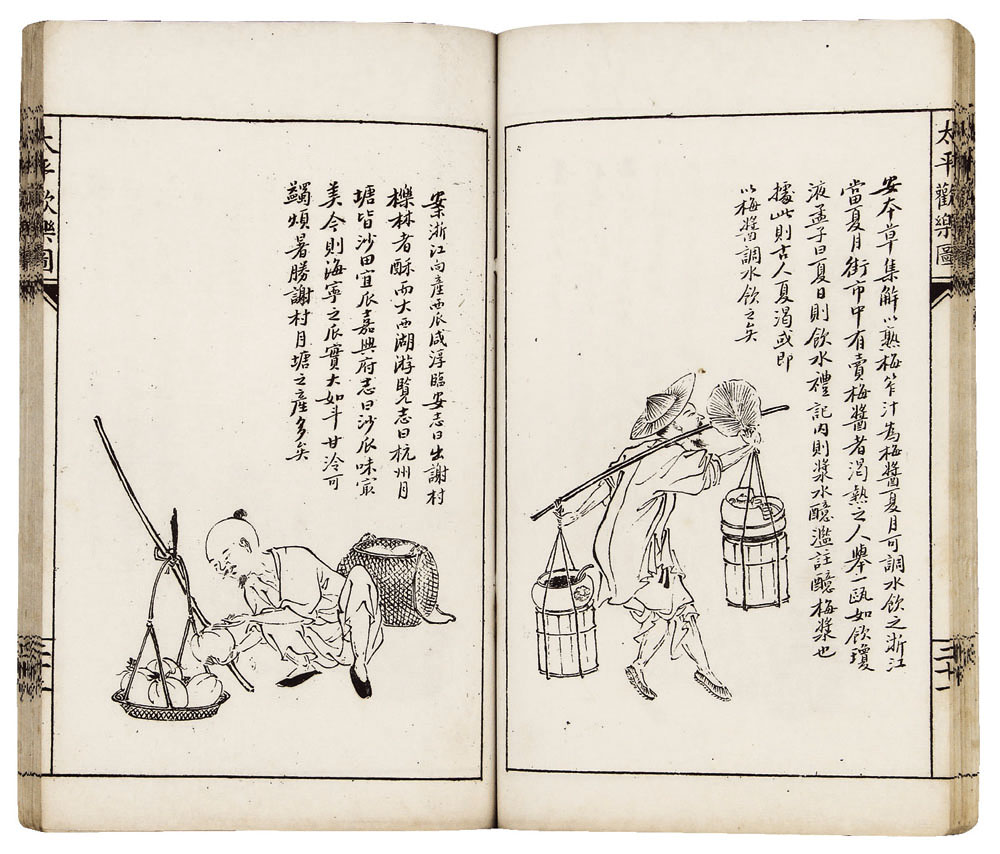 太平歡樂圖
安本草集解以熟梅笮汁為梅醬夏月可調水飲之浙江
當夏月街市中有賣梅醬者渴熱之人舉一甌如飲瓊
液孟子曰夏日則飲水禮記內則漿水醷濫註醷梅漿也
據此則古人夏渴或即
以梅醬調水飲之矣
二十一
案浙江向產西瓜咸淳臨安志曰出謝村
櫟林者酥而大西湖游覽志曰杭州月
塘皆沙田宜瓜嘉興府志曰沙瓜味冣
美今則海寧之瓜實大如斗甘泠可
蠲煩暑勝謝村月塘之產多矣
太平歡樂圖